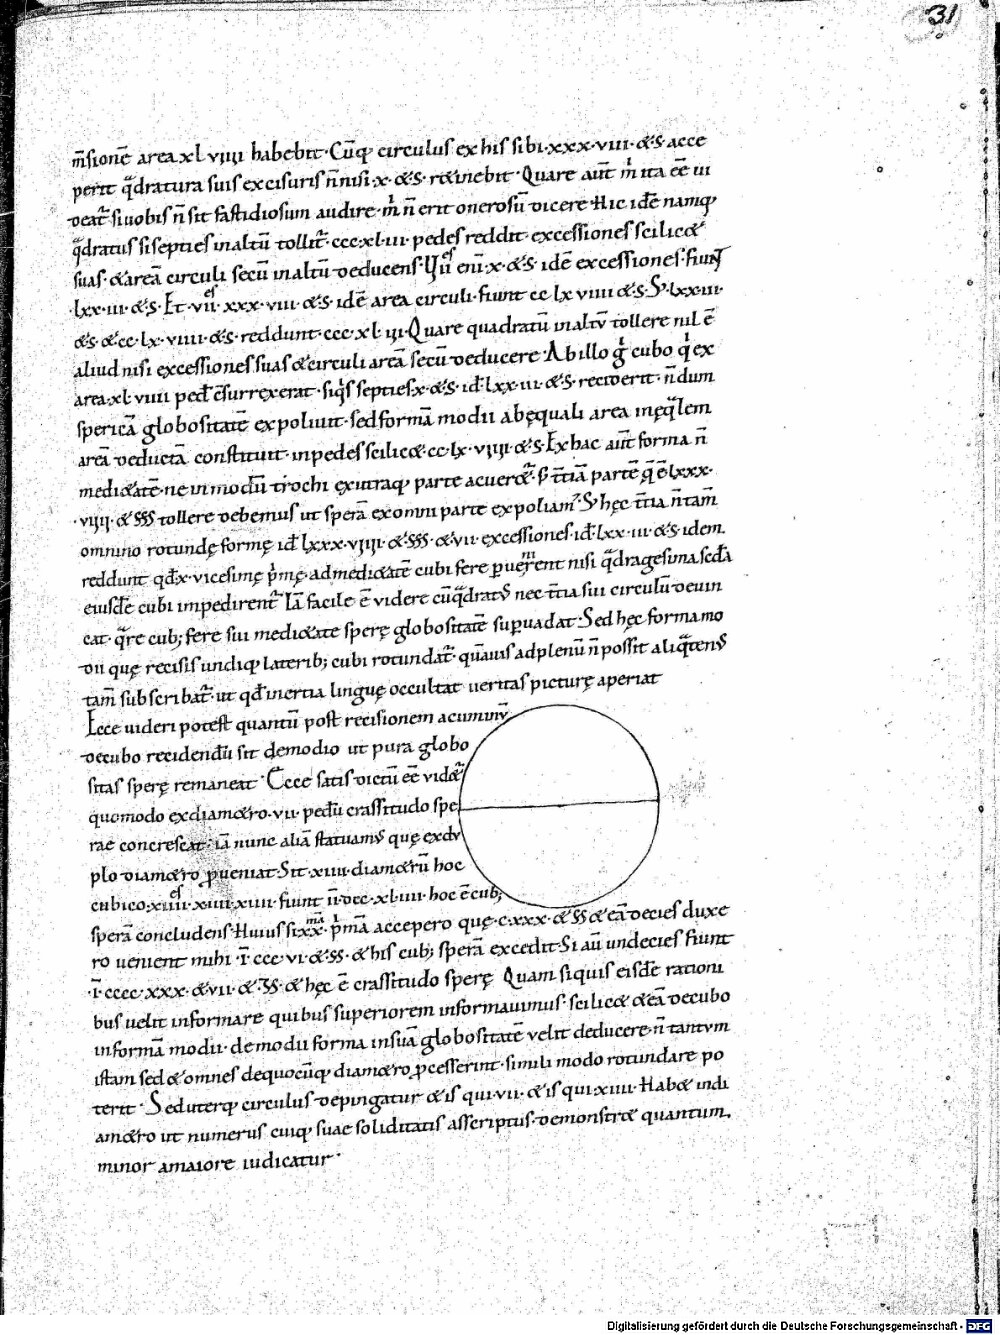 31
m̄sionē area xl viiii habebit· Cūq; circulus ex his sibi·xxx·viii·&·s·acce
perit q̄dratura suis excisuris n̄ nisi·x·&·s·r&inebit· Quare aut̄ m̍ ita eē ui
deat̄·si uobis n̄ sit fastidiosum audire·m̍ n̄ erit onerosū dicere· Hic idē namq;
q̄dratus si septies in altū tollit̄·ccc·xl·iii·pedes reddit·excessiones scilic&
suas·& areā circuli secū in altū deducens· enī·x·&·s·idē excessiones·fiunt
·lxx·iii·&·s·Et·vii·es xxx·viii·&·s·idē area circuli·fiunt cc lx viiii &·s·S;·lxx·iii·
&·s·&·cc·lx·viiii·&·s·reddunt·ccc·xl·iii·Quare quadratū in altū tollere nil ē
aliud nisi excessiones suas & circuli areā secū deducere· Ab illo g̍ cubo q̍ ex
area·xl viiii ped̄ c̄surrexerat·siq̍s septies·x·&·s·id̄·lxx·iii·&·s·reciderit·n̄dum
spericā globositatē expoliuit·sed formā modii ab ęquali area inęq̄lem
areā deductā constituit·in pedes scilic&·cc·lx·viiii·&·s·Ex hac aut̄ forma n̄
medi&atē·ne in modū trochi ex utraq; parte acuer&̄· t̄tiā partē q̄ ē lxxx·
·viiii·&·sss tollere debemus ut sperā ex omni parte expoliam;· S; hęc t̄tia n̄ tam̄
omnino rotundę formę id̄ lxxx·viiii·&·sss·&·vii·excessiones·id̄·lxx·iii·&·s·idem
reddunt qd̄·x·vicesimę p̍mę·ad medi&atē cubi fere peruenirent nisi q̄dragesima sc̄da
eiusdē cubi impedirent̄· Iā facile ē videre cū q̄drat; nec t̄tia sui circulū deuin
cat·q̄re cub; fere sui medi&ate sperę globositatē supuadat· Sed hęc forma mo
dii quę recisis undiq; laterib; cubi rotundat̄·quāuis ad plenū n̄ possit aliq̄tenus
tam̄ subscribat̄·ut qd̄ inertia linguę occultat ueritas picturę aperiat
Ecce uideri potest quantū post recisionem acuminū
de cubo recidendū sit de modio ut pura globo
sitas sperę remaneat· Ecce satis dictū eē vid&̄
quomodo ex diam&ro·vii·pedū crassitudo spe
rae concrescat·iā nunc aliā statuam; quę ex du
plo diam&ro pueniat· Sit·xiiii·diam&rū hoc
cubico·xiiii·es xiiii·xiiii·fiunt īī·dcc·xl·iiii·hoc ē cub;
sperā concludens· Huius si xx·mā p̍mā accepero quę·c·xxx·&·ss & eā decies duxe
ro uenient mihi·ī·ccc·vi·&·ss·& his cub; sperā excedit· Si aū undecies fiunt
·ī·cccc·xxx·&·vii·& ss·& hęc ē crassitudo sperę Quam si quis eisdē rationi
bus uelit informare quibus superiorem informauimus·scilic& & eā de cubo
in formā modii·de modii forma in suā globositatē velit deducere·n̄ tantum
istam sed & omnes de quocūq; diam&ro pcesserint·simili modo rotundare po
terit· Sed uterq; circulus depingatur & is qui·vii·& is qui·xiiii· Hab& in di
am&ro ut numerus cuiq; suae soliditatis asscriptus·demonstr& quantum
minor a maiore iudicatur·
Digitalisierung gefördert durch die Deutsche Forschungsgemeinschaft - DFG